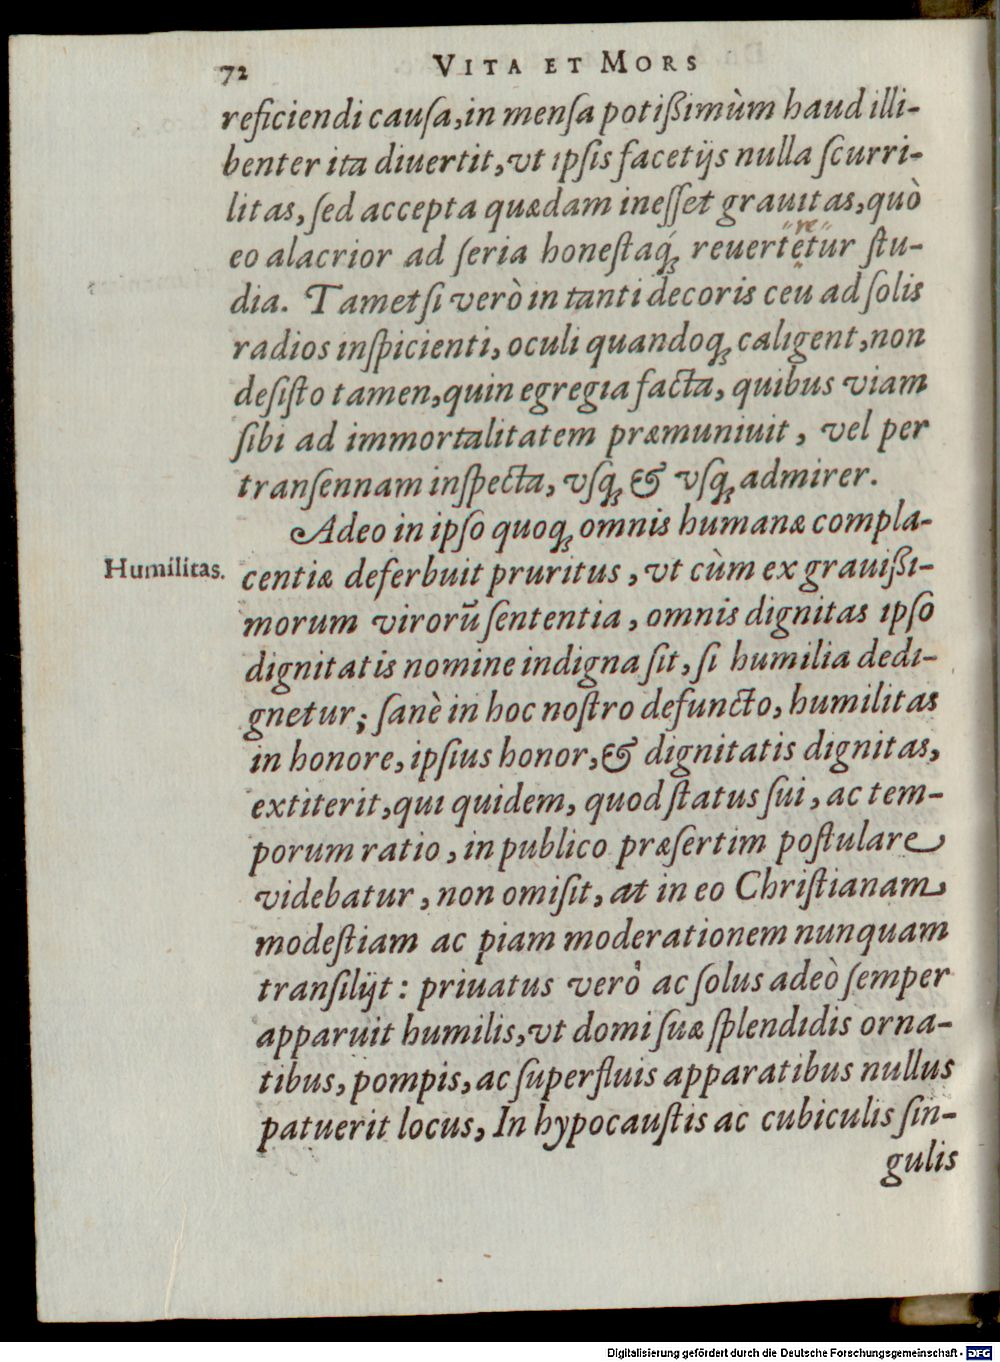 72 VITA ET MORS
reficiendi causa, in mensa potißimùm haud illi-
benter ita diuertit, vt ipſis facetijs nulla ſcurri-
litas, ſed accepta quædam ineſſet grauitas, quò
re
eo alacrior ad ſeria honeſtaq́ꝫ reuertetur ſtu-
dia. Tametſi verò in tanti decoris ceu ad ſolis
radios inſpicienti, oculi quandoqꝫ caligent, non
deſiſto tamen, quin egregia facta, quibus viam
ſibi ad immortalitatem præmuniuit, vel per
tranſennam inſpecta, vſq̀ꝫ & vſqꝫ admirer.
Adeo in ipſo quoqꝫ omnis humanæ compla-
Humilitas.
centiæ deferbuit pruritus, vt cùm ex grauißi-
morum virorũ ſententia, omnis dignitas ipſo
dignitatis nomine indigna ſit, ſi humilia dedi-
gnetur; ſanè in hoc noſtro defuncto, humilitas
in honore, ipſius honor, & dignitatis dignitas,
extiterit, qui quidem, quod ſtatus ſui, ac tem-
porum ratio, in publico præſertim poſtulare
videbatur, non omiſit, at in eo Chriſtianam
modeſtiam ac piam moderationem nunquam
tranſilijt: priuatus verò ac ſolus adeò ſemper
apparuit humilis, vt domi ſuæ ſplendidis orna-
tibus, pompis, ac ſuperfluis apparatibus nullus
patuerit locus, In hypocauſtis ac cubiculis ſin-
gulis
Digitalisierung gefördert durch die Deutsche Forschungsgemeinschaft - DFG